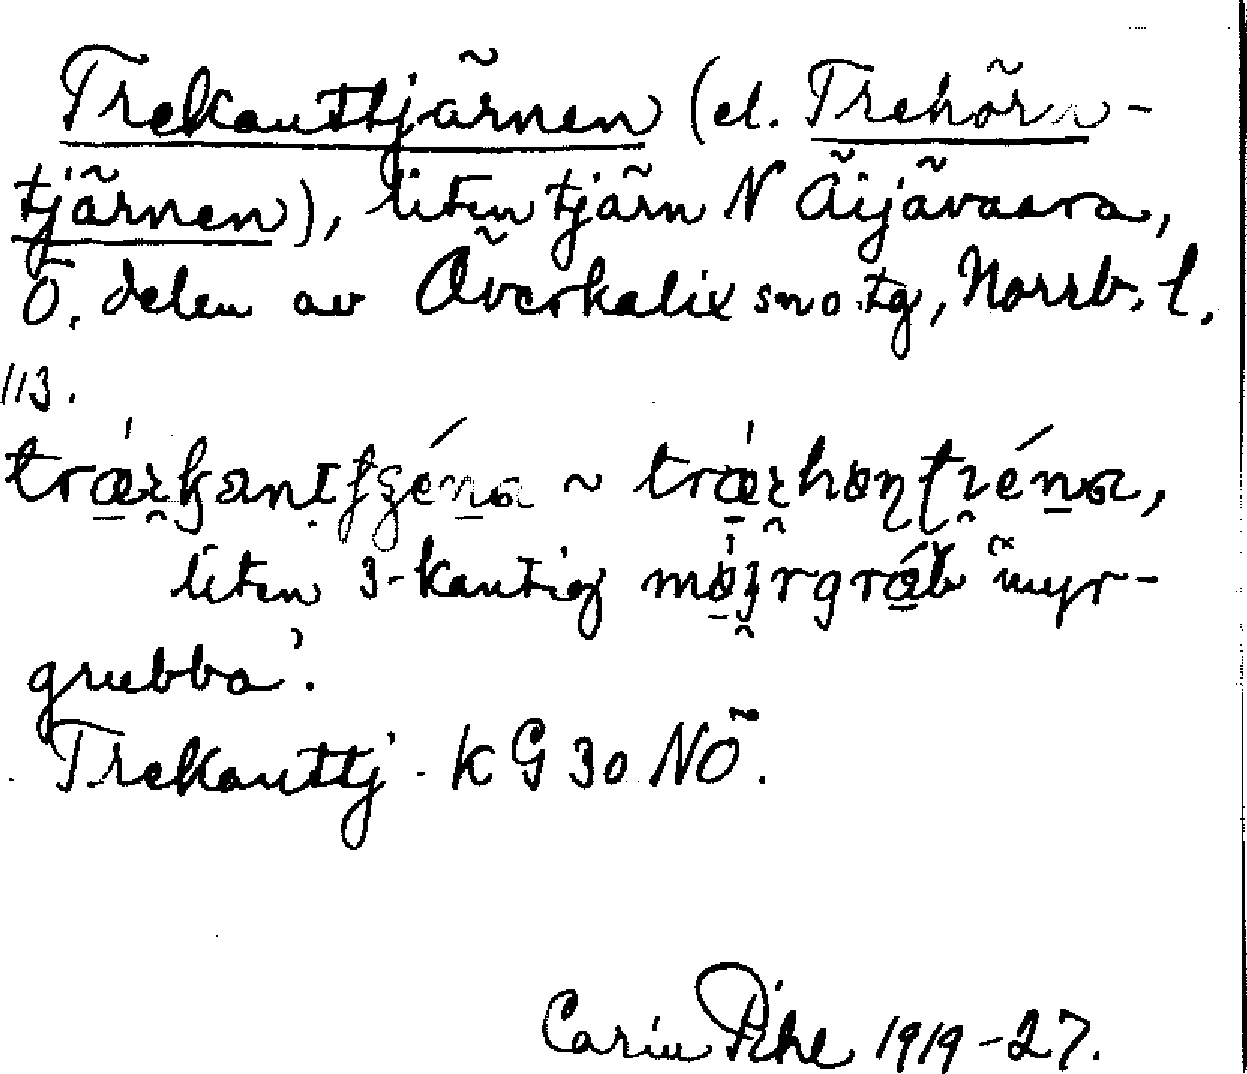 Trekanttjärnen (el. Trehörn-
tjärnen), liten tjärn N Äijävaara,
Ö. delen av Överkalix sn o. tg, Norrb. l.
113.
~
liten 3-kantig 'myr-
grubba'.
Trekanttj. KG 30 NÖ.
Carin Pihl 1919-27.